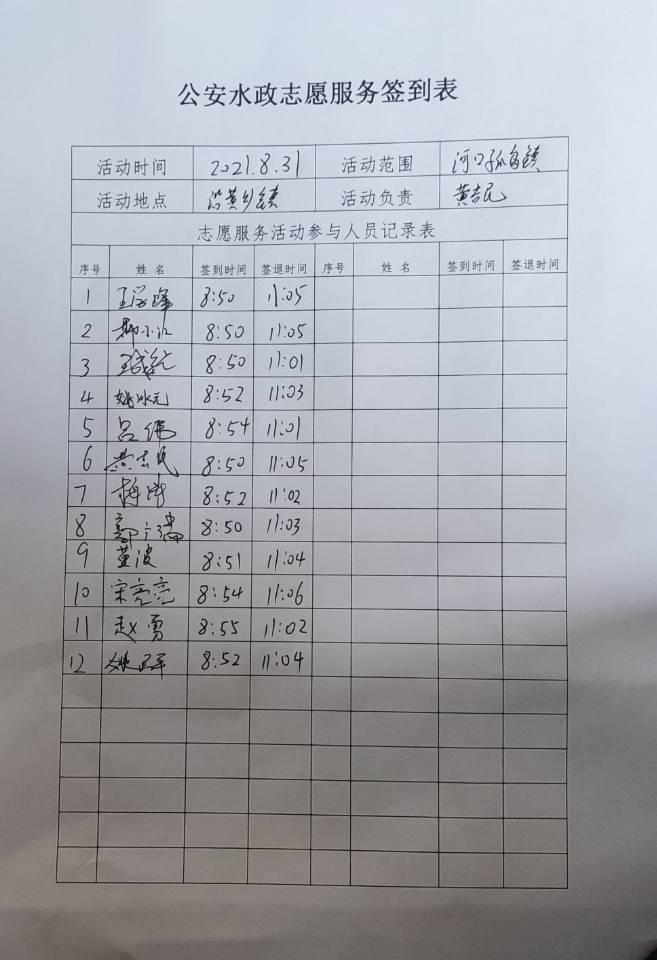 公安水政志愿服务签到表
活动时间 2021.8.31 活动范围 河口孤岛镇
活动地点 沿黄乡镇 活动负责 黄志民
志愿服务活动参与人员记录表
序号 姓名 签到时间 签退时间 序号 姓名 签到时间 签退时间
1 8:50 11:05
2 8:50 11:05
3 8:50 11:01
4 姚冰元 8:52 11:03
5 吕伟 8:54 11:01
6 黄志民 8:50 11:05
7 梅涛 8:52 11:02
8 8:50 11:03
9 董波 8:51 11:04
10 宋亮亮 8:54 11:06
11 赵勇 8:55 11:02
12 8:52 11:04